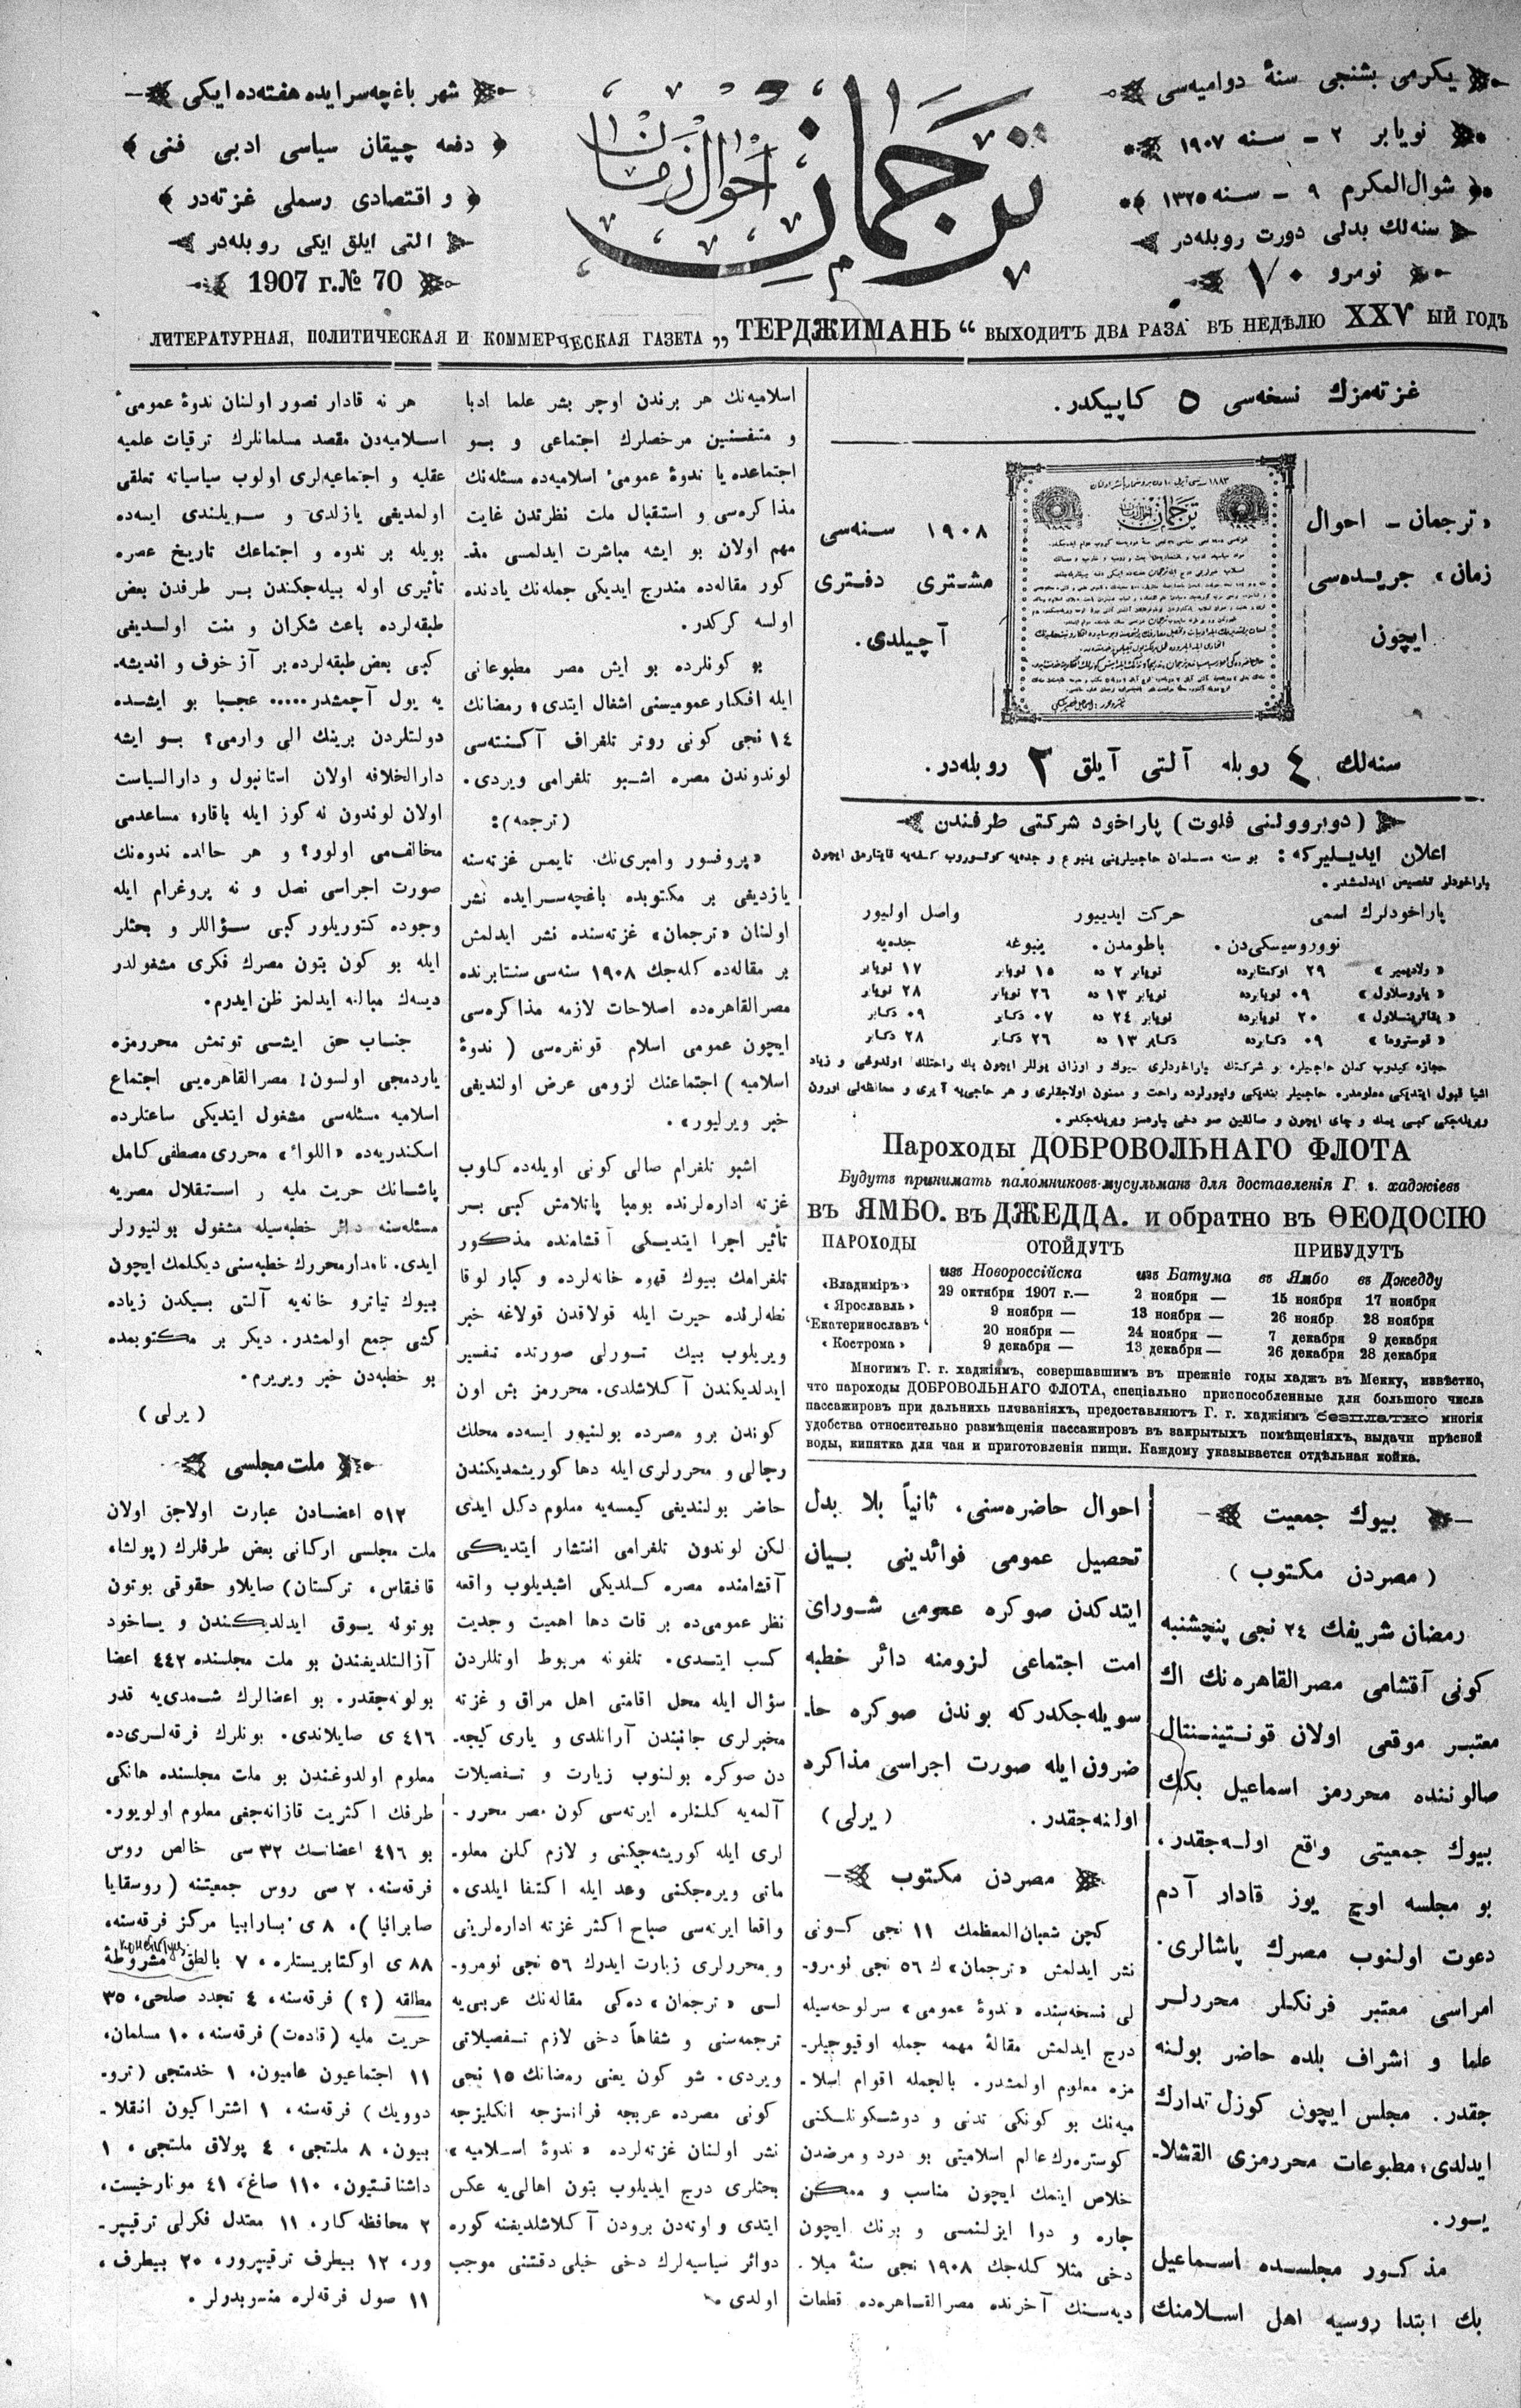 يكرمى بشنجى سنهٔ دواميه‌سى
نويابر ٢ – سنه ١٩٠٧
شوال المكرم ٩ – سنه ١٣٢٥
سنه‌لك بدلى دورت روبله‌در
نومرو ٧٠
ترجمان
احوال زمان
شهر باغچه‌سرايده هفته‌ده ايكى
دفعه چيقان سياسى ادبى فنى
و اقتصادى رسملى غزته‌در
التى ايلق ايكى روبله‌در
1907 г. № 70
ЛИТЕРАТУРНАЯ, ПОЛИТИЧЕСКАЯ И КОММЕРЧЕСКАЯ ГАЗЕТА „ТЕРДЖИМАНЬ“ ВЫХОДИТЪ ДВА РАЗА ВЪ НЕДѢЛЮ XXV ЫЙ ГОДЪ
غزته‌مزك نسخه‌سى ٥ كاپيكدر.
«ترجمان – احوال
زمان» جريده‌سى
ايچون
١٩٠٨ سنه‌سى
مشترى دفترى
آچيلدى.
سنه‌لك ٤ روبله آلتى آيلق ٢ روبله‌در.
(دوبروولنى فلوت) پاراخود شركتى طرفندن
اعلان ايديليركه: بو سنه مسلمان حاجيلرينى ينبوع و جده‌يه كوتوروب كفه‌يه قايتارمق ايچون
پاراخودلر تخصيص ايدلمشدر.
پاراخودلرك اسمى حركت ايدييور واصل اوليور
نووروسيسكى‌دن. باطومدن. ينبوغه جده‌يه
«ولاديمير» ٢٩ اوكتابرده نويابر ٢ ده ١٥ نويابر ١٧ نويابر
«ياروسلاول» ٠٩ نويابرده نويابر ١٣ ده ٢٦ نويابر ٢٨ نويابر
«يقاترينسلاول» ٢٠ نويابرده نويابر ٢٤ ده ٠٧ دكابر ٠٩ دكابر
«قوستروما» ٠٩ دكابرده دكابر ١٣ ده ٢٦ دكابر ٢٨ دكابر
حجازه كيدوب كلن حاجيلره بو شركتك پاراخودلرى بيوك و اوزاق يوللر ايچون پك راحتلك اولدوغى و زياد
اشيا قبول ايتديكى معلومدر. حاجيلر بنديكى واپورلرده راحت و ممنون اولاجقلرى و هر حاجى‌يه آيرى و محافظه‌لى اورون
ويريله‌جكى كبى يمك و چاى ايچون و صالقين صو دخى پارسز ويريله‌جكدر.
Пароходы ДОБРОВОЛЬНАГО ФЛОТА
Будутъ принимать паломниковъ-мусульманъ для доставленія Г. г. хаджіевъ
въ ЯМБО. въ ДЖЕДДА. и обратно въ ѲЕОДОСІЮ
ПАРОХОДЫ ОТОЙДУТЪ ПРИБУДУТЪ
изъ Новороссійска изъ Батума въ Ямбо въ Джедду
«Владиміръ» 29 октября 1907 г.— 2 ноября — 15 ноября 17 ноября
«Ярославль» 9 ноября — 13 ноября — 26 ноябр 28 ноября
‘Екатеринославъ‘ 20 ноября — 24 ноября — 7 декабря 9 декабря
«Кострома» 9 декабря — 13 декабря — 26 декабря 28 декабря
Многимъ Г. г. хаджіямъ, совершавшимъ въ прежніе годы хаджъ въ Мекку, извѣстно,
что пароходы ДОБРОВОЛЬНАГО ФЛОТА, спеціально приспособленные для большого числа
пассажировъ при дальнихъ плаваніяхъ, предоставляютъ Г. г. хаджіямъ безплатно многія
удобства относительно размѣщенія пассажировъ въ закрытыхъ помѣщеніяхъ, выдачи прѣсной
воды, кипятка для чая и приготовленія пищи. Каждому указывается отдѣльная койка.
بيوك جمعيت
(مصردن مكتوب)
رمضان شريفك ٢٤ نجى پنچشنبه
كونى آقشامى مصرالقاهره‌نك اك
معتبر موقعى اولان قونتيننتال
صالوننده محررمز اسماعيل بكك
بيوك جمعيتى واقع اوله‌جقدر.
بو مجلسه اوچ يوز قادار آدم
دعوت اولنوب مصرك پاشالرى.
امراسى معتبر فرنكلر محررلر
علما و اشراف بلده حاضر بولنه
جقدر. مجلس ايچون كوزل تدارك
ايدلدى؛ مطبوعات محررمزى القشلا-
يسور.
مذكور مجلسده اسماعيل
بك ابتدا روسيه اهل اسلامنك
احوال حاضره‌سنى، ثانياً بلا بدل
تحصيل عمومى فوائدينى بيان
ايتدكدن صوكره عمومى شوراى
امت اجتماعى لزومنه دائر خطبه
سويله‌جكدركه بوندن صوكره حا-
ضرون ايله صورت اجراسى مذاكره
اولنه‌جقدر. (يرلى)
مصردن مكتوب
كچن شعبان المعظمك ١١ نجى كونى
نشر ايدلمش «ترجمان»ك ٥٦ نجى نومرو-
لى نسخه‌سنده «ندوهٔ عمومى» سرلوحه‌سيله
درج ايدلمش مقالهٔ مهمه جمله اوقيوجيلر-
مزه معلوم اولمشدر. بالجمله اقوام اسلا-
ميه‌نك بو كونكى تدنى و دوشكونلكنى
كوستره‌رك عالم اسلاميتى بو درد و مرضدن
خلاص ايتمك ايچون مناسب و ممكن
چاره و دوا ايزلنمسى و برنك ايچون
دخى مثلا كله‌جك ١٩٠٨ نجى سنهٔ ميلا-
ديه‌سنك آخرنده مصرالقاهره‌ده قطعات
اسلاميه‌نك هر برندن اوچر بشر علما ادبا
و متفننين مرخصلرك اجتماعى و بو
اجتماعده يا ندوهٔ عمومىٔ اسلاميه‌ده مسئله‌نك
مذاكره‌سى و استقبال ملت نظرندن غايت
مهم اولان بو ايشه مباشرت ايدلمسى مذ-
كور مقاله‌ده مندرج ايديكى جمله‌نك يادنده
اولسه كركدر.
بو كونلرده بو ايش مصر مطبوعاتى
ايله افكار عموميسنى اشغال ايتدى؛ رمضانك
١٤ نجى كونى روتر تلغراف آكنته‌سى
لوندوندن مصره اشبو تلغرامى ويردى.
(ترجمه):
«پروفسور وامبرى‌نك تايمس غزته‌سنه
يازديغى بر مكتوبده باغچه‌سرايده نشر
اولنان «ترجمان» غزته‌سنده نشر ايدلمش
بر مقاله‌ده كله‌جك ١٩٠٨ سنه‌سى سنتابرنده
مصرالقاهره‌ده اصلاحات لازمه مذاكره‌سى
ايچون عمومى اسلام قونفره‌سى (ندوهٔ
اسلاميه) اجتماعنك لزومى عرض اولنديغى
خبر ويرليور».
اشبو تلغرام صالى كونى اويله‌ده كلوب
غزته اداره‌لرنده بومبا پاتلامش كبى بر
تأثير اجرا ايتديكى آقشامنده مذكور
تلغرامك بيوك قهوه خانه‌لرده و كبار لوقا
نطه‌لرنده حيرت ايله قولاقدن قولاغه خبر
ويريلوب بيك تورلى صورتده تفسير
ايدلديكندن آكلاشلدى. محررمز بش اون
كوندن برو مصرده بولنيور ايسه‌ده محلك
رجالى و محررلرى ايله دها كوريشمديكندن
حاضر بولنديغى كيمسه‌يه معلوم دكل ايدى
لكن لوندون تلغرامى انتشار ايتديكى
آقشامنده مصره كلديكى اشيديلوب واقعه
نظر عمومى‌ده بر قات دها اهميت و جديت
كسب ايتدى. تلفونه مربوط اوتللردن
سؤال ايله محل اقامتى اهل مراق و غزته
مخبرلرى جانبندن آرانلدى و يارى كيجه-
دن صوكره بولنوب زيارت و تفصيلات
آلمه‌يه كلنلره ايرته‌سى كون مصر محرر-
لرى ايله كوريشه‌جكنى و لازم كلن معلو-
ماتى ويره‌جكنى وعد ايله اكتفا ايلدى.
واقعا ايرته‌سى صباح اكثر غزته اداره‌لرينى
و محررلرى زيارت ايدرك ٥٦ نجى نومرو-
لى «ترجمان»ده‌كى مقاله‌نك عربى‌يه
ترجمه‌سنى و شفاهاً دخى لازم تفصيلاتى
ويردى. شو كون يعنى رمضانك ١٥ نجى
كونى مصرده عربجه فرانسزجه انكليزجه
نشر اولنان غزته‌لرده «ندوهٔ اسلاميه»
بحثلرى درج ايديلوب بتون اهالى‌يه عكس
ايتدى و اوته‌دن برودن آكلاشلديغنه كوره
دوائر سياسيه‌لرك دخى خيلى دقتنى موجب
اولدى.
هر نه قادار تصور اولنان ندوهٔ عمومىٔ
اسلاميه‌دن مقصد مسلمانلرك ترقيات علميه
عقليه و اجتماعيه‌لرى اولوب سياسياته تعلقى
اولمديغى يازلدى و سويلندى ايسه‌ده
بويله بر ندوه و اجتماعك تاريخ عصره
تأثيرى اوله بيله‌جكندن بر طرفدن بعض
طبقه‌لرده باعث شكران و منت اولديغى
كبى بعض طبقه‌لرده بر آز خوف و انديشه-
يه يول آچمشدر..... عجبا بو ايشده
دولتلردن برينك الى وارمى؟ بو ايشه
دارالخلافه اولان استانبول و دارالسياست
اولان لوندون نه كوز ايله باقار؛ مساعدمى
مخالف‌مى اولور؟ و هر حالده ندوه‌نك
صورت اجراسى نصل و نه پروغرام ايله
وجوده كتوريلور كبى سؤاللر و بحثلر
ايله بو كون بتون مصرك فكرى مشغولدر
ديسه‌ك مبالغه ايدلمز ظن ايدرم.
جناب حق ايشى توتمش محررمزه
ياردمجى اولسون! مصرالقاهره‌يى اجتماع
اسلاميه مسئله‌سى مشغول ايتديكى ساعتلرده
اسكندريه‌ده «اللواء» محررى مصطفى كامل
پاشانك حريت مليه و استقلال مصريه
مسئله‌سنه دائر خطبه‌سيله مشغول بولنيورلر
ايدى. نامدار محررك خطبه‌سنى ديكلمك ايچون
بيوك تياترو خانه‌يه آلتى بيكدن زياده
كشى جمع اولمشدر. ديكر بر مكتوبمده
بو خطبه‌دن خبر ويريرم.
(يرلى)
ملت مجلسى
٥١٢ اعضادن عبارت اولاجق اولان
ملت مجلسى اركانى بعض طرفلرك (پولشا،
قافقاس، تركستان) صايلاو حقوقى بوتون
بوتونه يوق ايدلديكندن و ياخود
آزالتلديغندن بو ملت مجلسنده ٤٤٢ اعضا
بولونه‌جقدر. بو اعضالرك شمدى‌يه قدر
٤١٦ ى صايلاندى. بونلرك فرقه‌لرى‌ده
معلوم اولدوغندن بو ملت مجلسنده هانكى
طرفك اكثريت قازانه‌جغى معلوم اولويور.
بو ٤١٦ اعضانك ٣٢ سى خالص روس
فرقه‌سنه، ٢ سى روس جمعيتنه (روسقايا
صابرانيا)، ٨ ى بسارابيا مركز فرقه‌سنه،
٨٨ ى اوكتابريستلره، ٧ بالطق مشروطهٔ
مطالقه (؟) فرقه‌سنه، ٤ تجدد صلحى، ٣٥
حريت مليه (قاده‌ت) فرقه‌سنه، ١٠ مسلمان،
١١ اجتماعيون عاميون، ١ خدمتجى (ترو-
دوويك) فرقه‌سنه، ١ اشتراكيون انقلا-
بيون، ٨ ملتجى، ٤ پولاق ملتجى، ١
داشناقستيون، ١١٠ صاغ، ٤١ مونارخيست،
٢ محافظه‌كار، ١١ معتدل فكرلى ترقيپر-
ور، ١٢ بيطرف ترقيپرور، ٢٠ بيطرف،
١١ صول فرقه‌لره منسوبدولر.